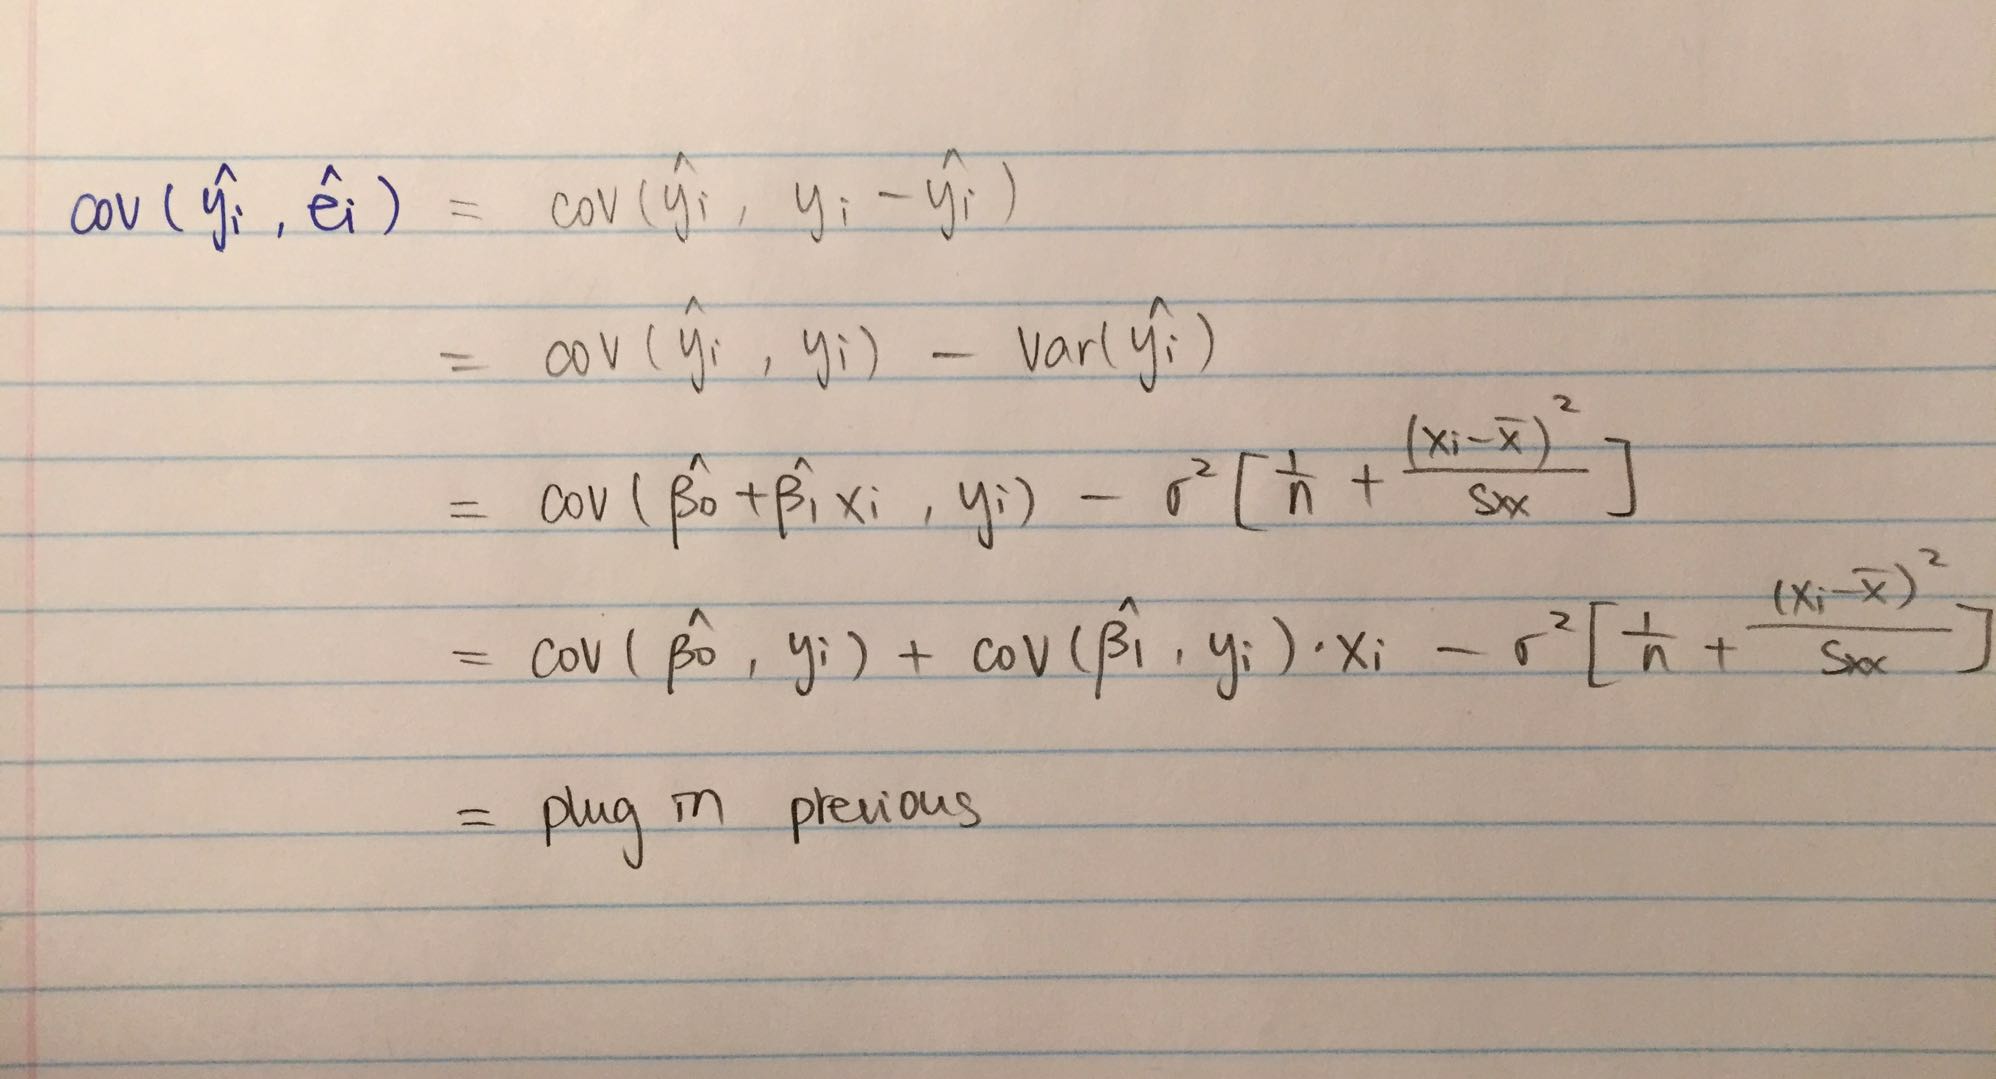 cov(ŷi, êi) = cov(ŷi, yi - ŷi)
= cov(ŷi, yi) - Var(ŷi)
= cov(β̂0 + β̂1 xi, yi) - σ² [1/n + (xi - x̄)²/Sxx]
= cov(β̂0, yi) + cov(β̂1, yi)·xi - σ² [1/n + (xi - x̄)²/Sxx]
= plug in previous